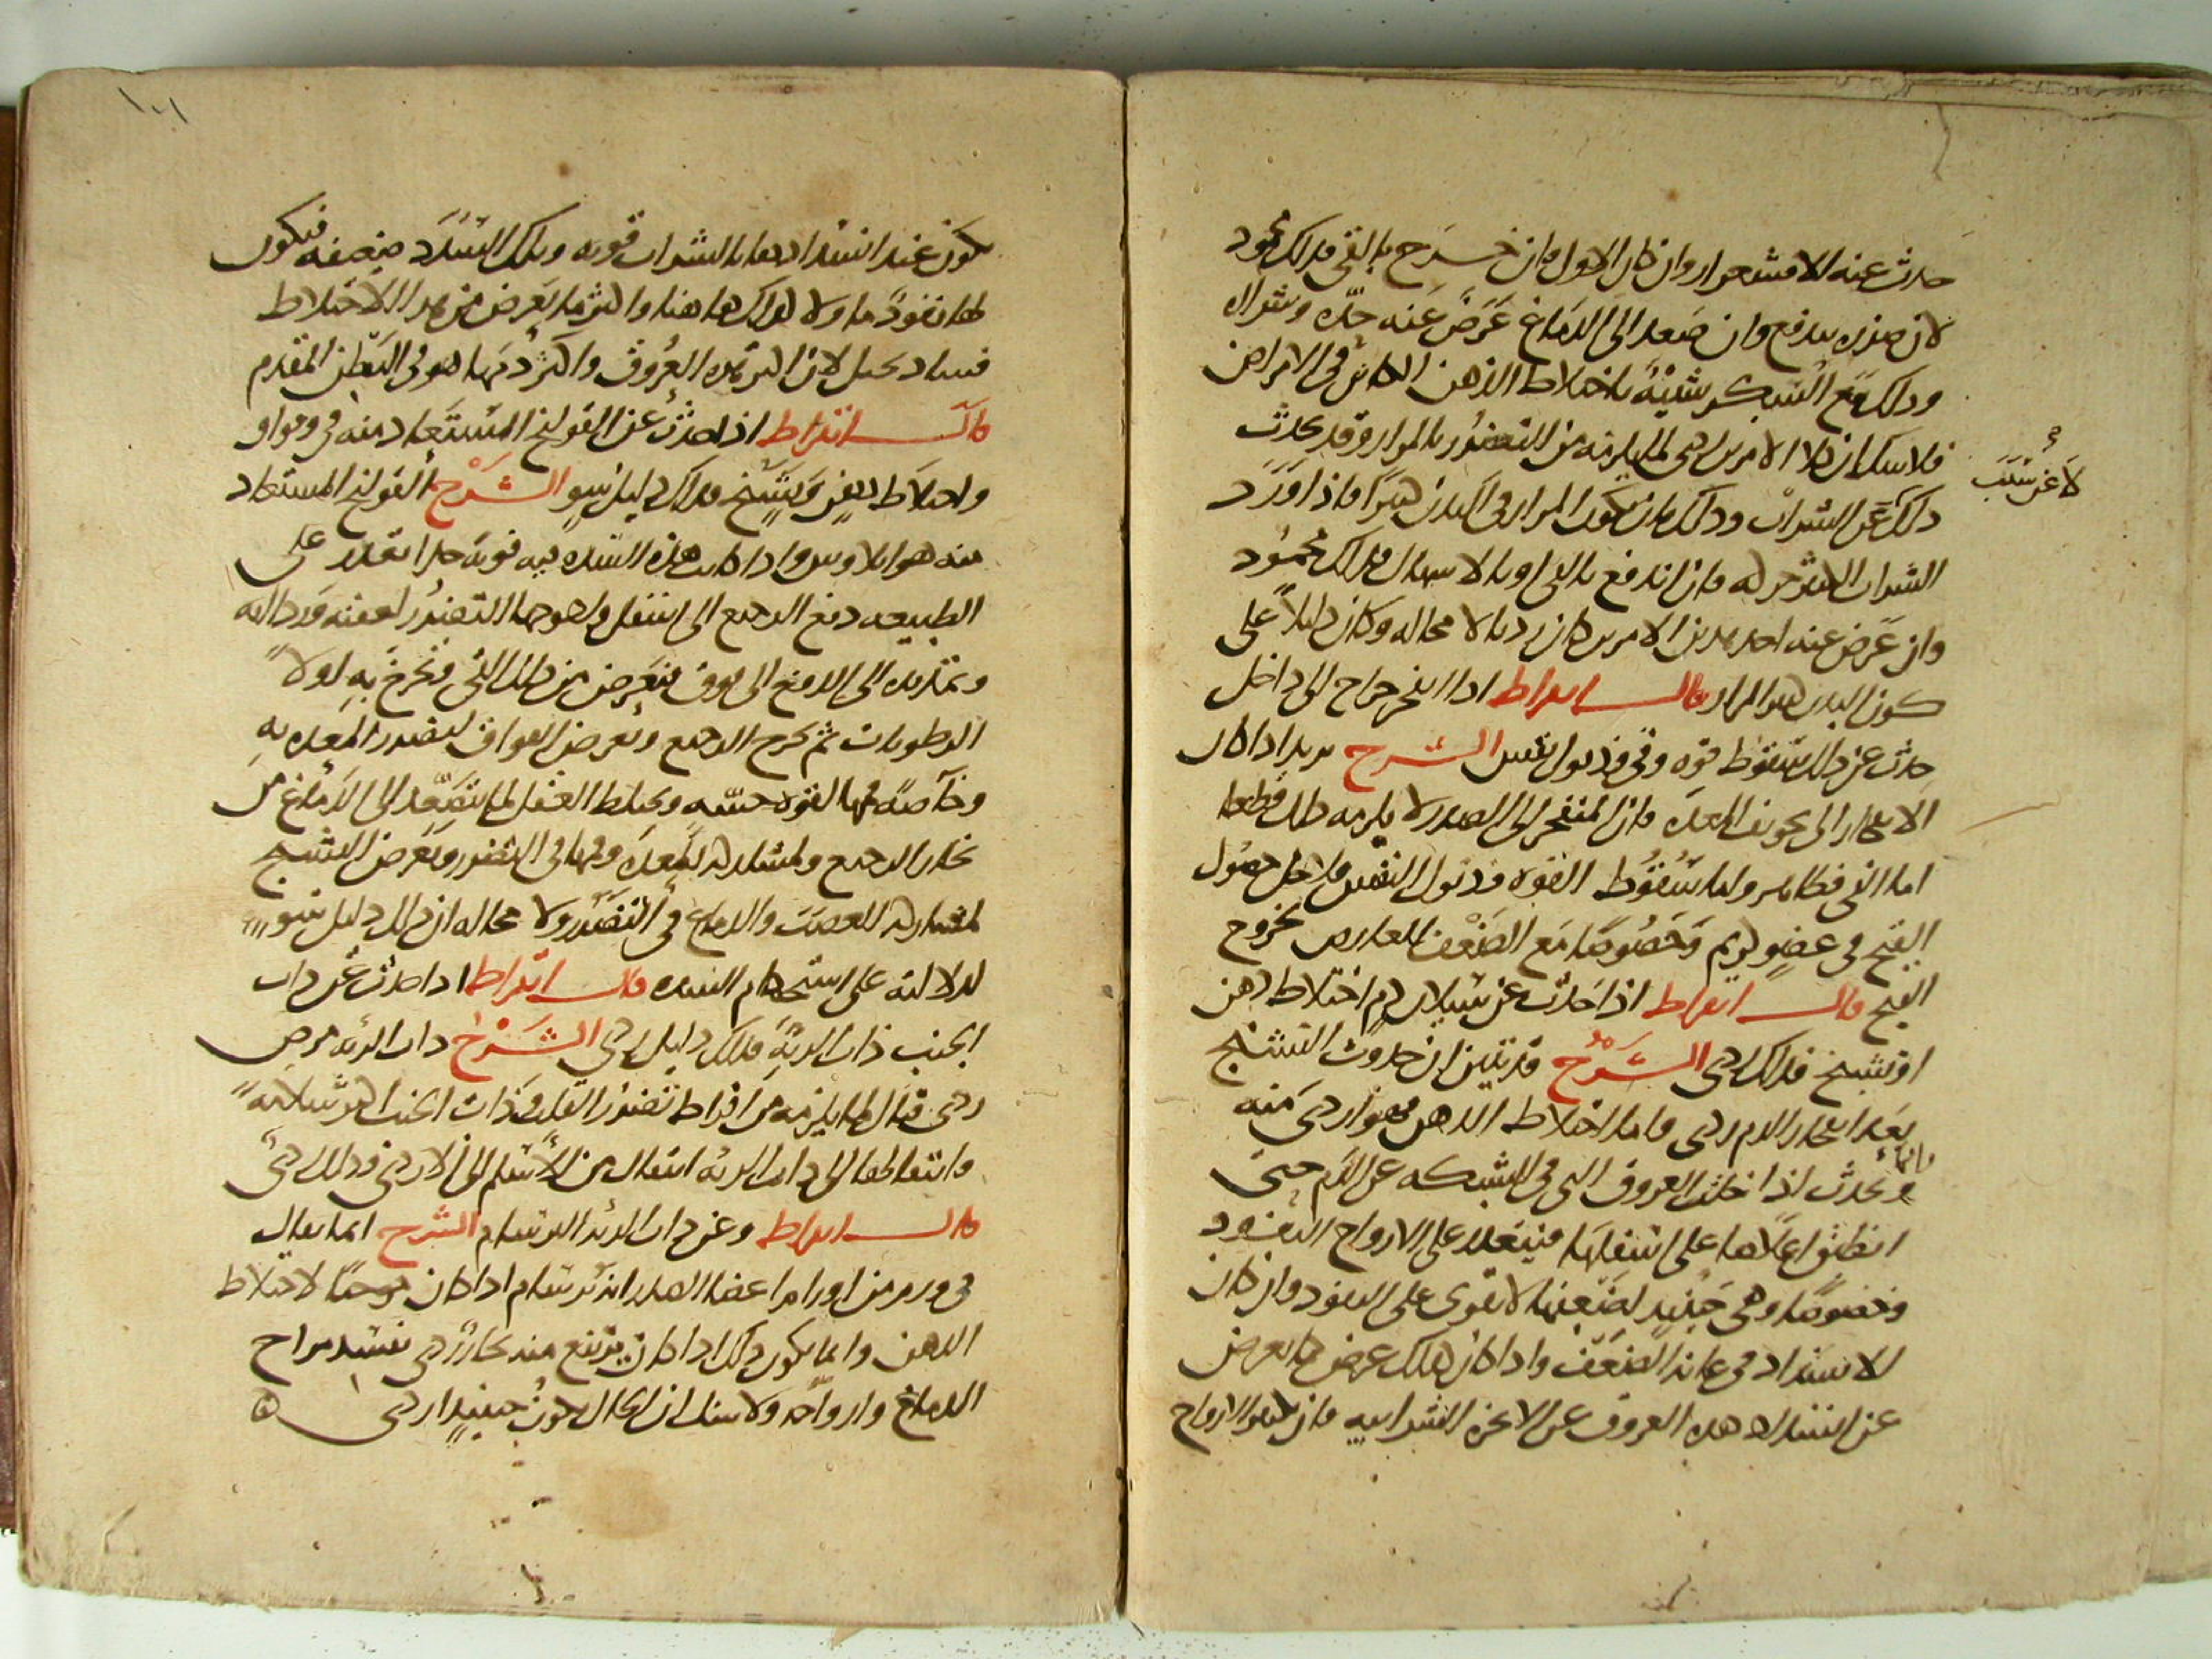 حدث عنه الاقشعرار وان كان الاول فان خرج بالقي فذلك محمود
لان ضرره يندفع وان صعد الى الدماغ عرض عنه حده وشراره
وذلك مع السكر شبيه باختلاط الذهن الكاين في الامراض
فلا شك ان هذا الامرين ردي لما يلزمه من التضرر بالمرار وقد يحدث
لا عن سبب
ذلك عن الشراب وذلك بان يكون المرار في البدن كثيرا فاذا ورد
الشراب اندفع بالقي او بالاسهال فذلك محمود
وان عرض عنه احد هذين الامرين كان رديا لا محاله وكان دليلا على
كون البدن كثير المرار قال ابقراط اذا انفجر خراج الى داخل
حدث عن ذلك سقوط قوه وقي وذبول نفس الشرح يريد اذا كان
الانفجار الى تجويف المعده فان المنفجر الى الصدر لا يلزمه ذلك قطعا
اما القي فظاهر واما سقوط القوه وذبول النفس فلاجل حصول
القيح في عضو كريم وخصوصا مع الضعف العارض لخروج
القيح قال ابقراط اذا حدث عن سيلان دم اختلاط ذهن
او تشنج فذلك ردي الشرح قد تبين ان حدوث التشنج
بعد انفجار الدم ردي واما اختلاط الذهن فهو اردي منه
فانما
ويحدث اذا خلت العروق التي في الشبكه عن الدم حتى
انطبق اعلاها على اسفلها فيتعذر على الارواح النفود
وخصوصا وهي حينيد لضعفها لا تقوى على النفود وان كان
الانسداد في غايه الضعف واذا كان كذلك عرض ما يعرض
عن انسداد هذه العروق عن الابخره الشرابيه فان الارواح
تكون عند انسدادها بالشراب قويه وتلك السدد ضعيفه فيكون
لها نفود ما ولا كذلك هاهنا واكثر ما يعرض من هذا الاختلاط
فساد تخيل لان اكثر هذه العروق واكثر دمها هو في البطن المقدم
قال ابقراط اذا حدث عن القولنج المستعاد منه قي وفواق
واختلاط ذهن وتشنج فذلك دليل سو الشرح القولنج المستعاد
منه هو ايلاوس واذا كانت هذه السده فيه قويه جدا تعذر على
الطبيعه دفع الرجيع الى اسفل واحوجها التضرر لعفنه ورداته
وتمديده الى الدفع الى فوق فيعرض من ذلك القي وتخرج به اولا
الرطوبات ثم يخرج الرجيع ويعرض الفواق لتضرر المعده به
وخاصه فمها لقوه حسه ويختلط العقل لما يتصعد الى الدماغ من
بخار الرجيع ولمشاركه للمعده وفمها في التضرر ويعرض التشنج
لمشاركه للعصب والدماغ في التضرر ولا محاله ان ذلك دليل سو
لدلالته على استحكام السده قال ابقراط اذا حدث عن ذات
الجنب ذات الريه فذلك دليل ردي الشرح ذات الريه مرض
ردي قتال لما يلزمه من افراط تضرر القلب وذات الجنب اكثر سلامه
وانتقالها الى ذات الريه انتقال من الاسلم الى الاردي وذلك ردي
قال ابقراط وعن ذات الريه البرسام الشرح انما يقال
في ورم من اورام اعضا الصدر انه برسام اذا كان موجبا لاختلاط
الذهن وانما يكون ذلك اذا كان يرتفع منه بخار ردي يفسد مزاج
الدماغ وارواحه ولا شك ان الحال يكون حينيد اردي